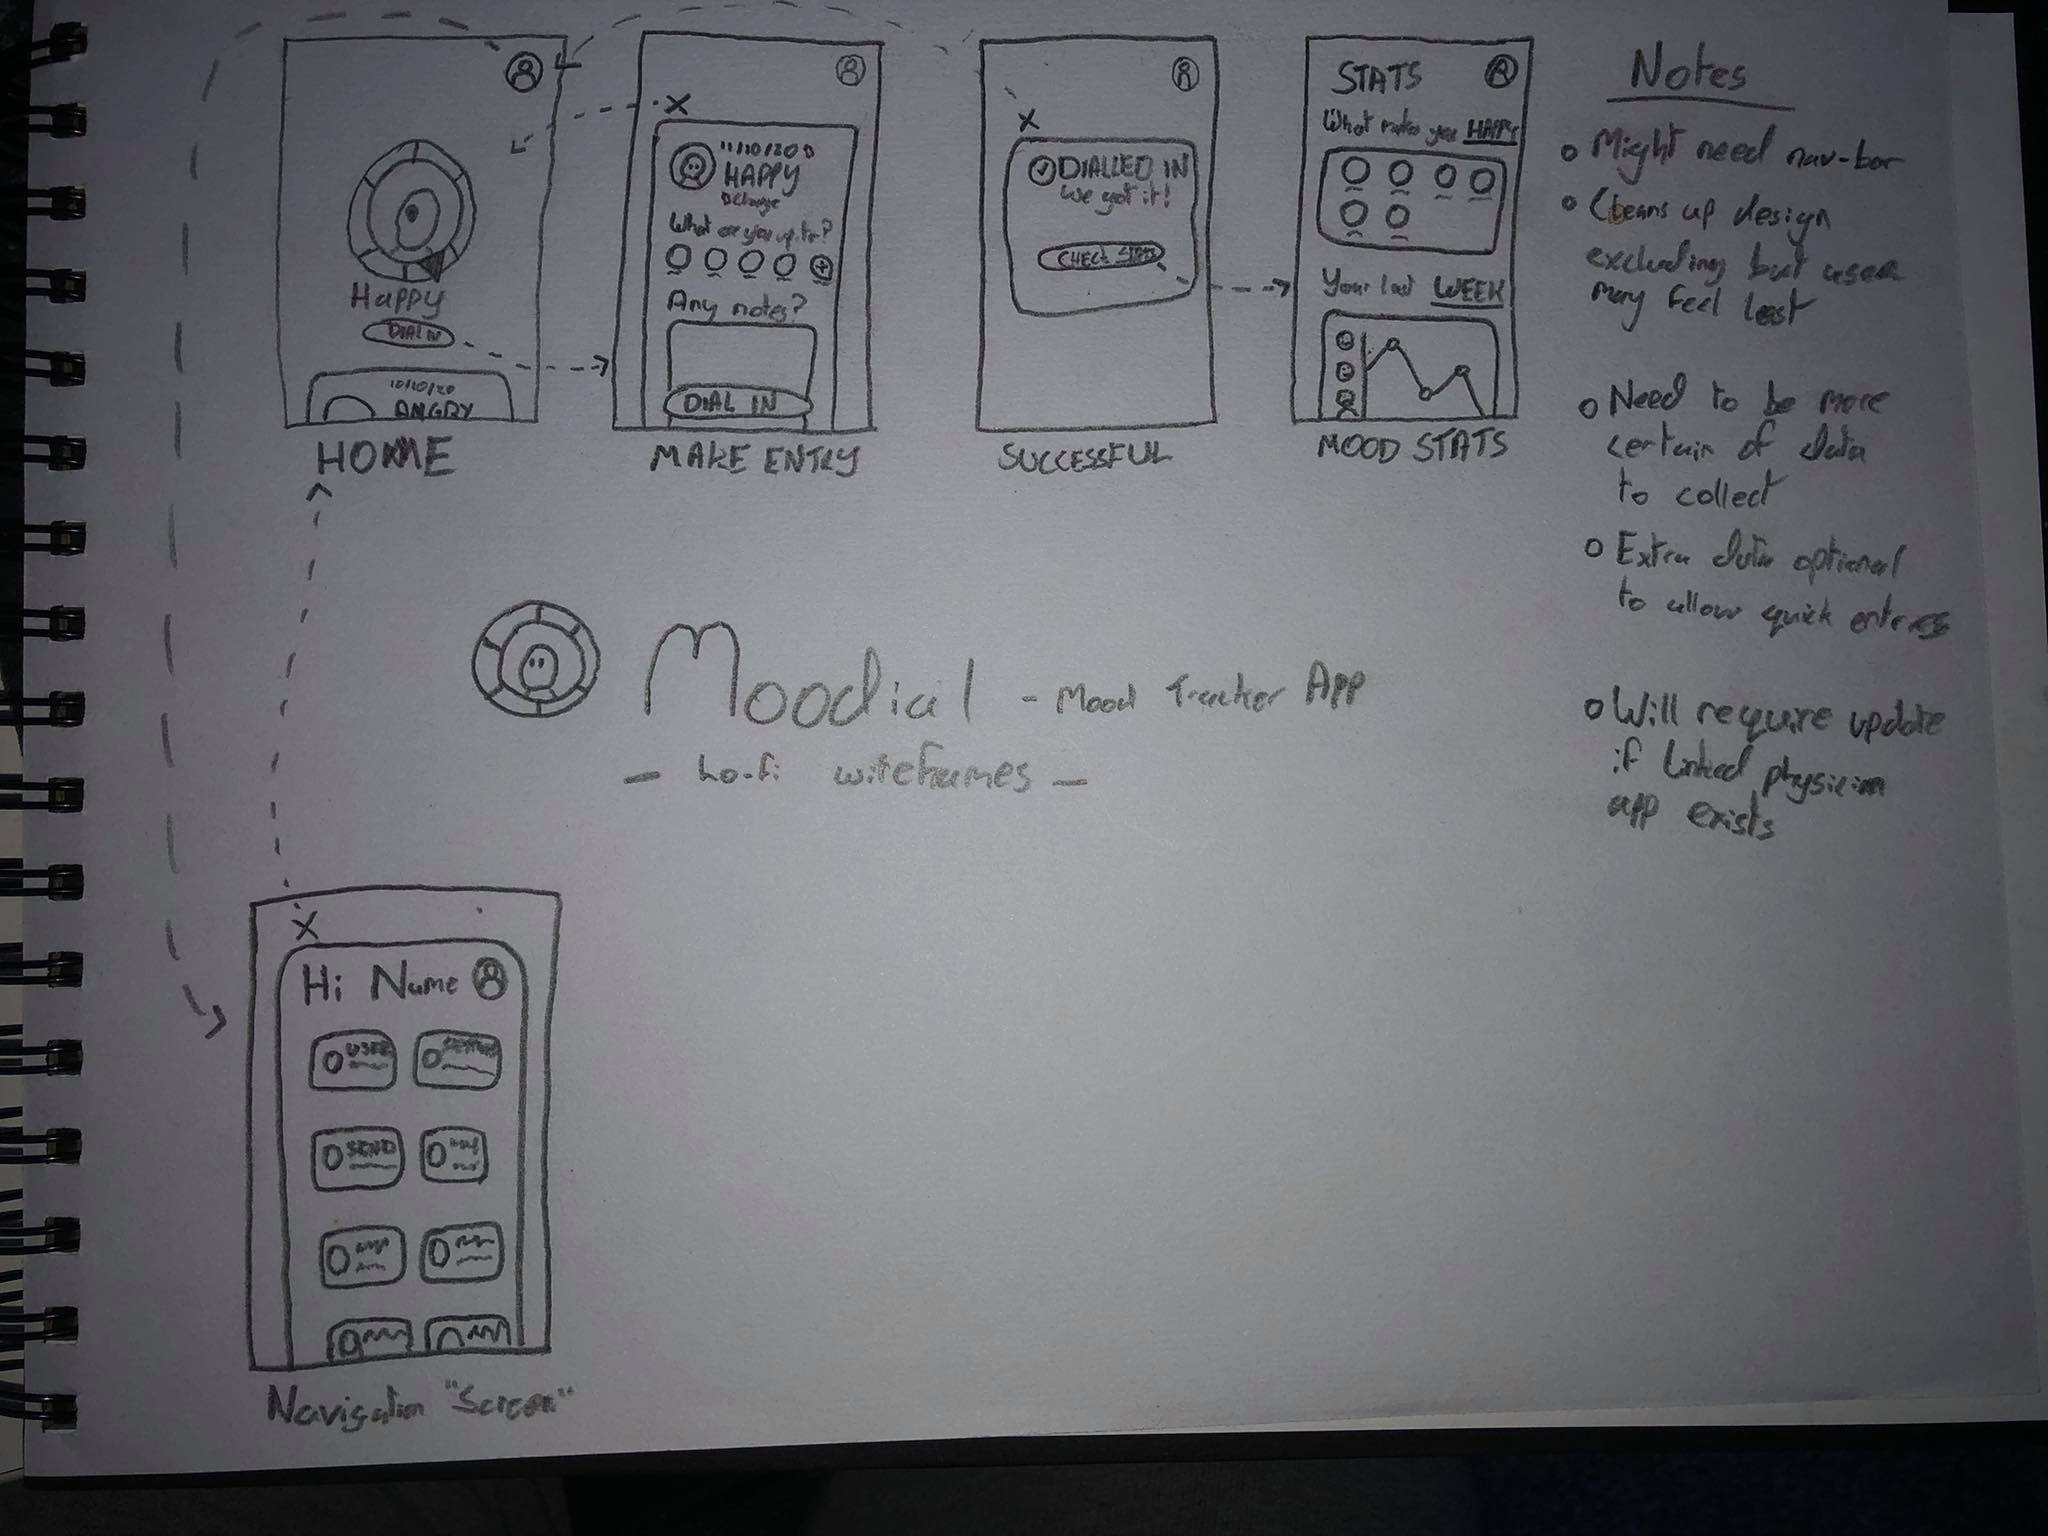 Happy
DIAL IN
10/10/20
ANGRY
HOME
X
11/10/20
HAPPY
Change
What are you up to?
Any notes?
DIAL IN
MAKE ENTRY
X
DIALLED IN
We got it!
CHECK STATS
SUCCESSFUL
STATS
What makes you HAPPY
Your last WEEK
MOOD STATS
Notes
Might need nav-bar
Cleans up design
excluding but users
may feel lost
Need to be more
certain of data
to collect
Extra data optional
to allow quick entries
Will require update
if linked physician
app exists
Moodial - Mood Tracker App
- Lo-fi wireframes -
X
Hi Name
USER
SEND
Navigation "Screen"